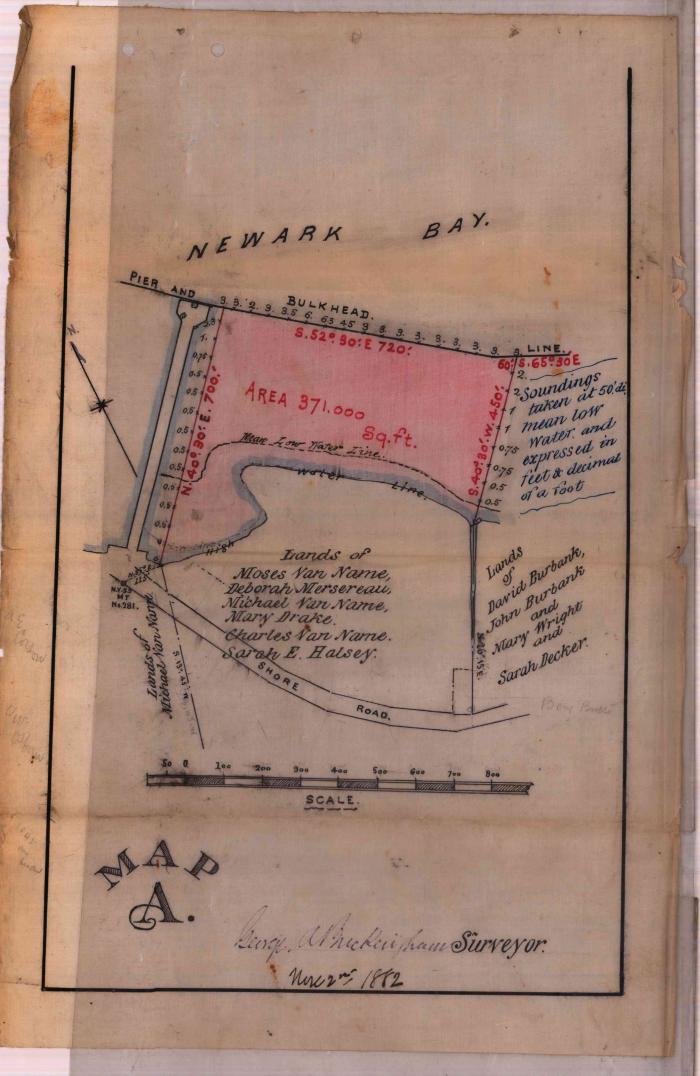 NEWARK BAY.
PIER AND BULKHEAD. LINE.
S. 52° 30' E 720'.
60' S. 65° 30 E
N
N. 40° 30' E. 700.'
AREA 371.000
Sq. ft.
S. 40° 30'. W. 450'.
Mean Low Water Line.
High Water Line.
Soundings
taken at 50' di
mean low
water. and
expressed in
feet & decimal
of a foot
Lands of
Moses Van Name,
Deborah Mersereau,
Michael Van Name,
Mary Drake.
Charles Van Name.
Sarah E. Halsey.
Lands
of
David Burbank,
John Burbank
and
Mary Wright
and
Sarah Decker.
N.Y. 53
MT
No. 281.
Lands of
Michael Van Name
SHORE ROAD.
50 0 100 200 300 400 500 600 700 800
SCALE.
MAP
A.
George A Buckingham Surveyor.
Nov 2nd 1882